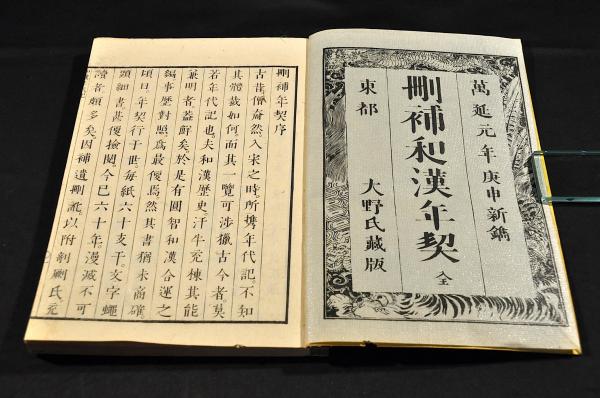 萬延元年庚申新鐫
刪補和漢年契 全
東都
大野氏藏版
刪補年契序
古昔僧奝然入宋之時所携年代記不知
其體裁如何而其一覧可渉獵古今者莫
若年代記也夫和漢歴史汗牛充棟其能
兼明者蓋鮮矣於是有圓智和漢合運之
編事歴對照爲最便焉然其書猶未商確
頃日年契行于世毎紙六十支干支字蠅
頭細書甚便撿閲今巳六十年漫滅不可
讀者頗多矣因補遺刪訛以附剞劂氏云